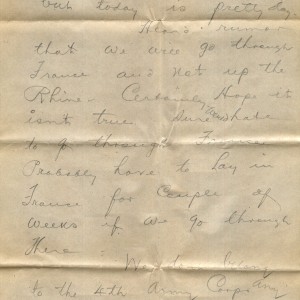 but today is pretty day.
Hear's rumor
that we will go through
France and not up the
Rhine. Certainly Hope it
isn't true. Sure hate
to go through France
Probably have to Lay in
France for couple of
weeks if we go through
There.
We don't belong
to the 4th Army Corps any